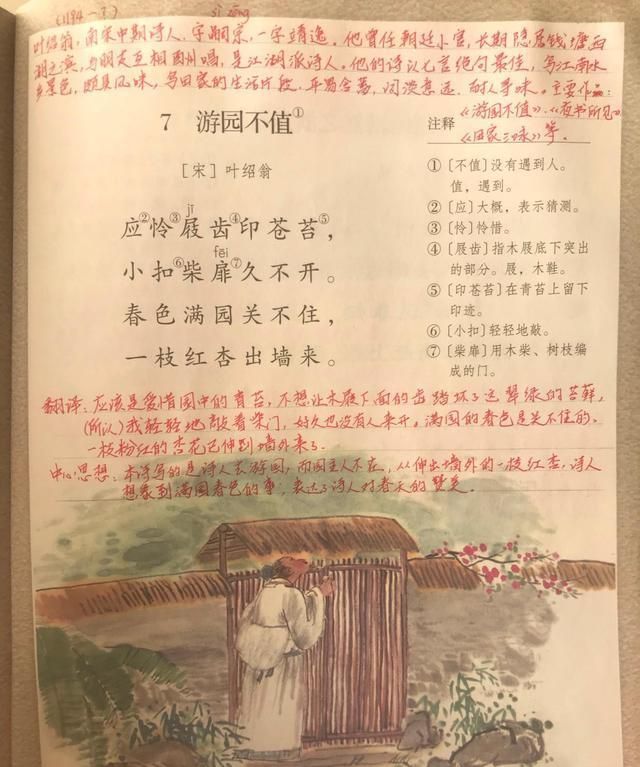 (1194-?) sì zōng
叶绍翁,南宋中期诗人,字嗣宗,一字靖逸。他曾任朝廷小官,长期隐居钱塘西
湖之滨,与朋友互相酬唱,是江湖派诗人。他的诗以七言绝句最佳,写江南水
乡景色,颇具风味,写田家的生活片段,平易含蓄,闲淡意远,耐人寻味。主要作品:
《游园不值》、《夜书所见》
《田家三咏》等.
7 游园不值①
[宋] 叶绍翁
jī
应②怜③屐齿④印苍苔⑤,
fēi
小扣⑥柴扉⑦久不开。
春色满园关不住,
一枝红杏出墙来。
注释
①〔不值〕没有遇到人。
值,遇到。
②〔应〕大概,表示猜测。
③〔怜〕怜惜。
④〔屐齿〕指木屐底下突出
的部分。屐,木鞋。
⑤〔印苍苔〕在青苔上留下
印迹。
⑥〔小扣〕轻轻地敲。
⑦〔柴扉〕用木柴、树枝编
成的门。
翻译:应该是爱惜园中的青苔,不想让木屐下面的齿踏坏了这翠绿的苔藓,
(所以)我轻轻地敲着柴门,好久也没有人来开。满园的春色是关不住的,
一枝粉红的杏花已伸到墙外来了.
中心思想:本诗写的是诗人去游园,而园主人不在,从伸出墙外的一枝红杏,诗人
想象到满园春色的事,表达了诗人对春天的赞美.